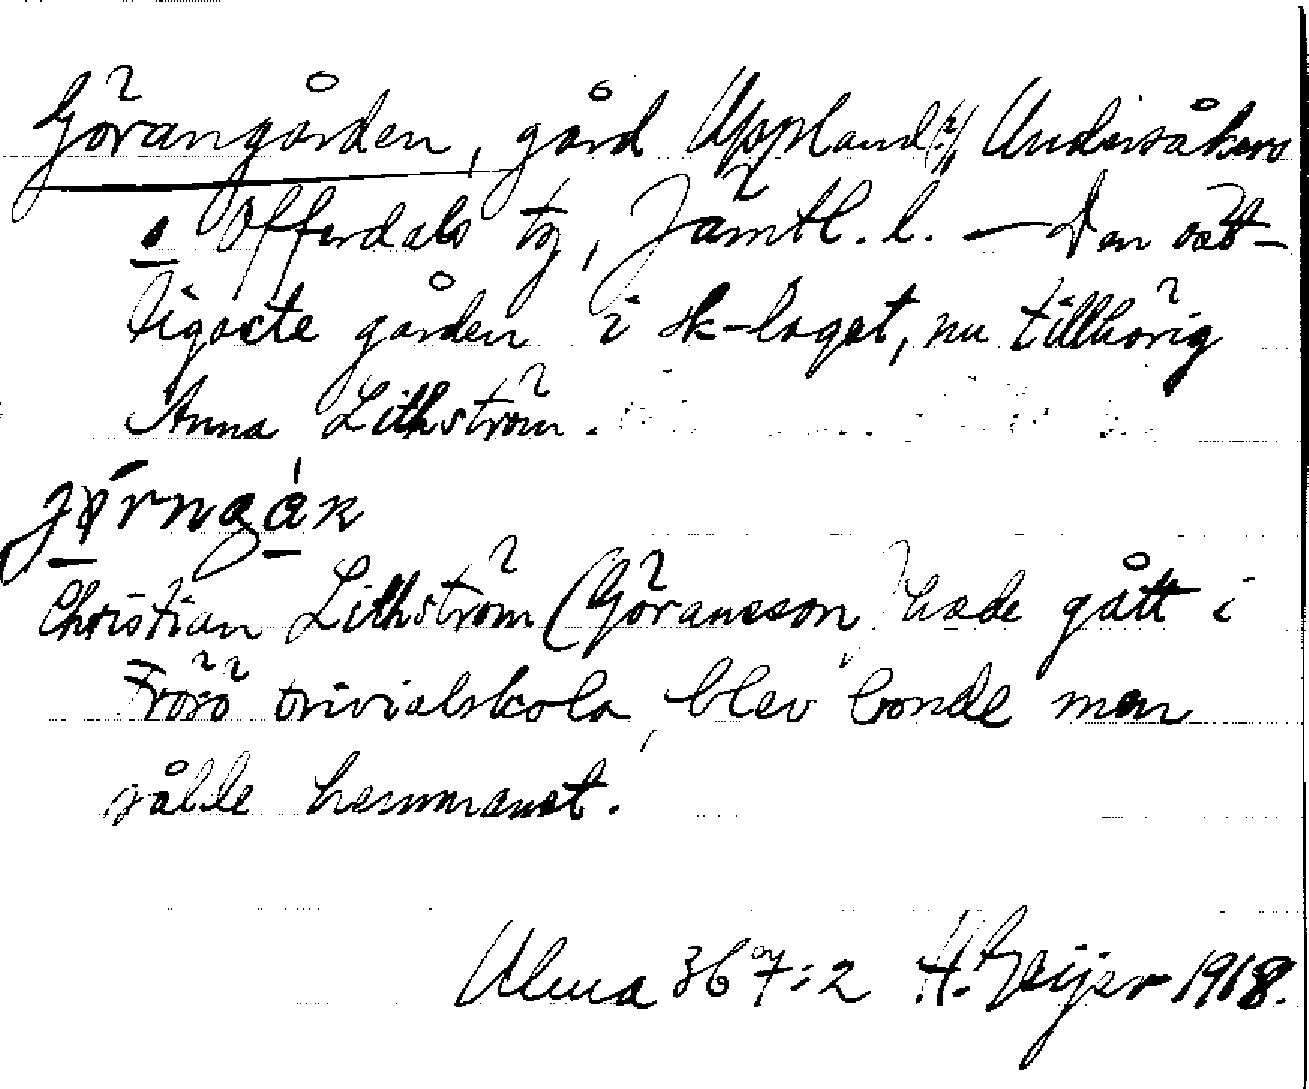 Görangården, gård Uppland(?), Undersåkers
o Offerdals tg, Jämtl. l. — Den ståt-
ligaste gården i sk-laget, nu tillhörig
Anna Lithström.
Christian Lithström (Göransson) hade gått i
Frösö trivialskola, blev bonde men
sålde hemmanet.
Ulma 367:2 H. Geijer 1918.